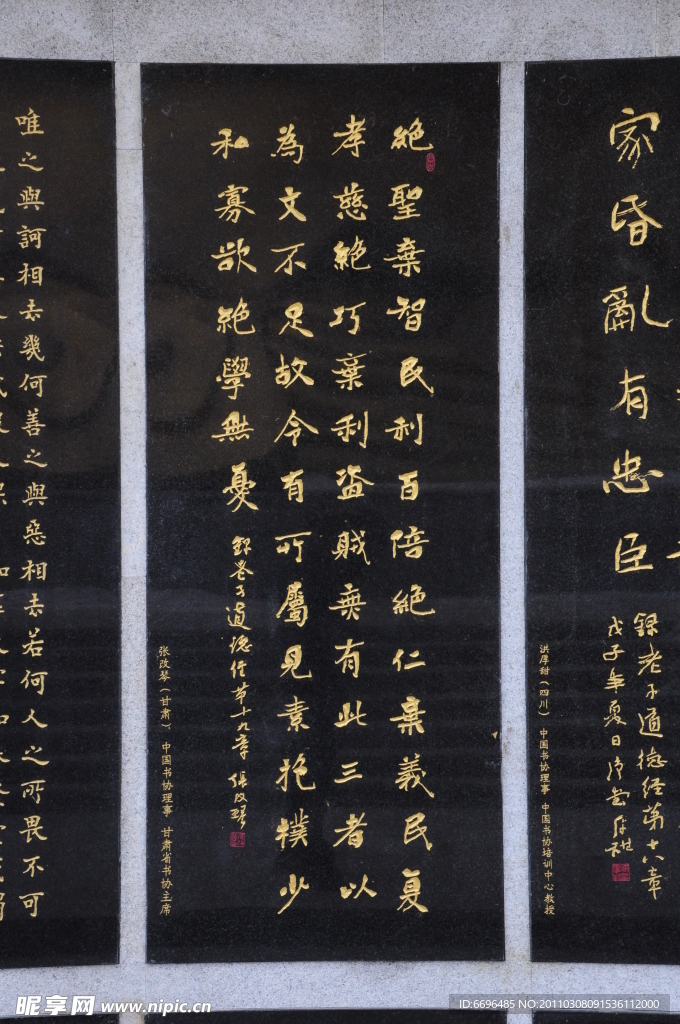 家昏亂有忠臣
錄老子道德经第十八章
戊子年夏日
洪厚甜（四川） 中国书协理事 中国书协培训中心教授
絶聖棄智民利百倍絶仁棄義民复
孝慈絶巧棄利盗賊無有此三者以
為文不足故令有所屬見素抱樸少
私寡欲絶學無憂
錄老子道德经第十九章 張改琴
张改琴（甘肃） 中国书协理事 甘肃省书协主席
唯之與訶相去幾何善之與惡相去若何人之所畏不可
昵享网 www.nipic.cn
ID:6696485 NO:20110308091536112000